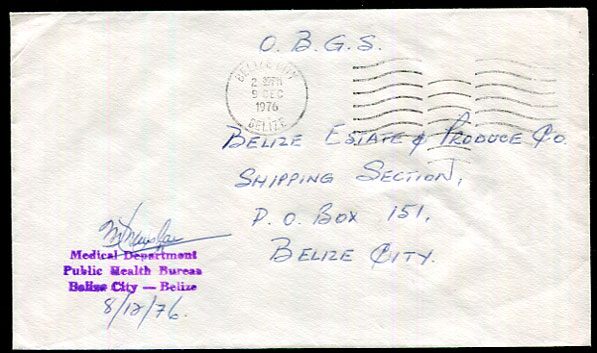 O. B. G. S.
BELIZE CITY
9 DEC
1976
BELIZE
BELIZE ESTATE & PRODUCE CO.
SHIPPING SECTION,
P. O. BOX 151,
BELIZE CITY.
Medical Department
Public Health Bureau
Belize City — Belize
8/12/76.